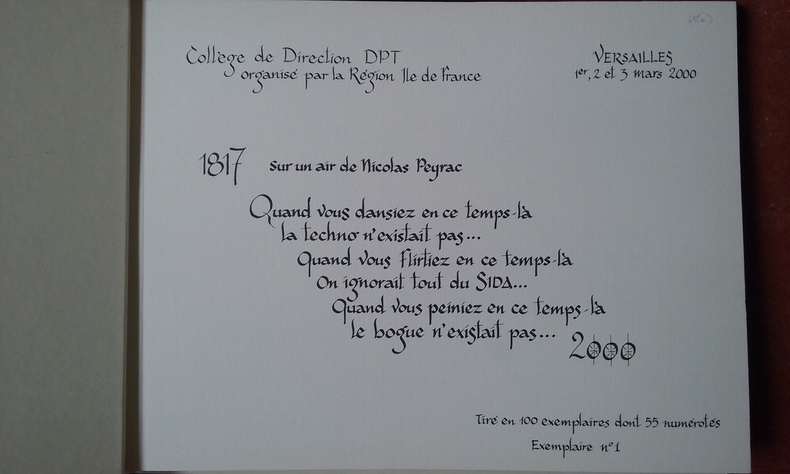 Collège de Direction DPT
organisé par la Région Ile de France
VERSAILLES
1er, 2 et 3 mars 2000
1817 sur un air de Nicolas Peyrac
Quand vous dansiez en ce temps-là
la techno n'existait pas...
Quand vous flirtiez en ce temps-là
On ignorait tout du SIDA...
Quand vous peiniez en ce temps-là
le bogue n'existait pas...
2000
Tiré en 100 exemplaires dont 55 numérotés
Exemplaire n°1